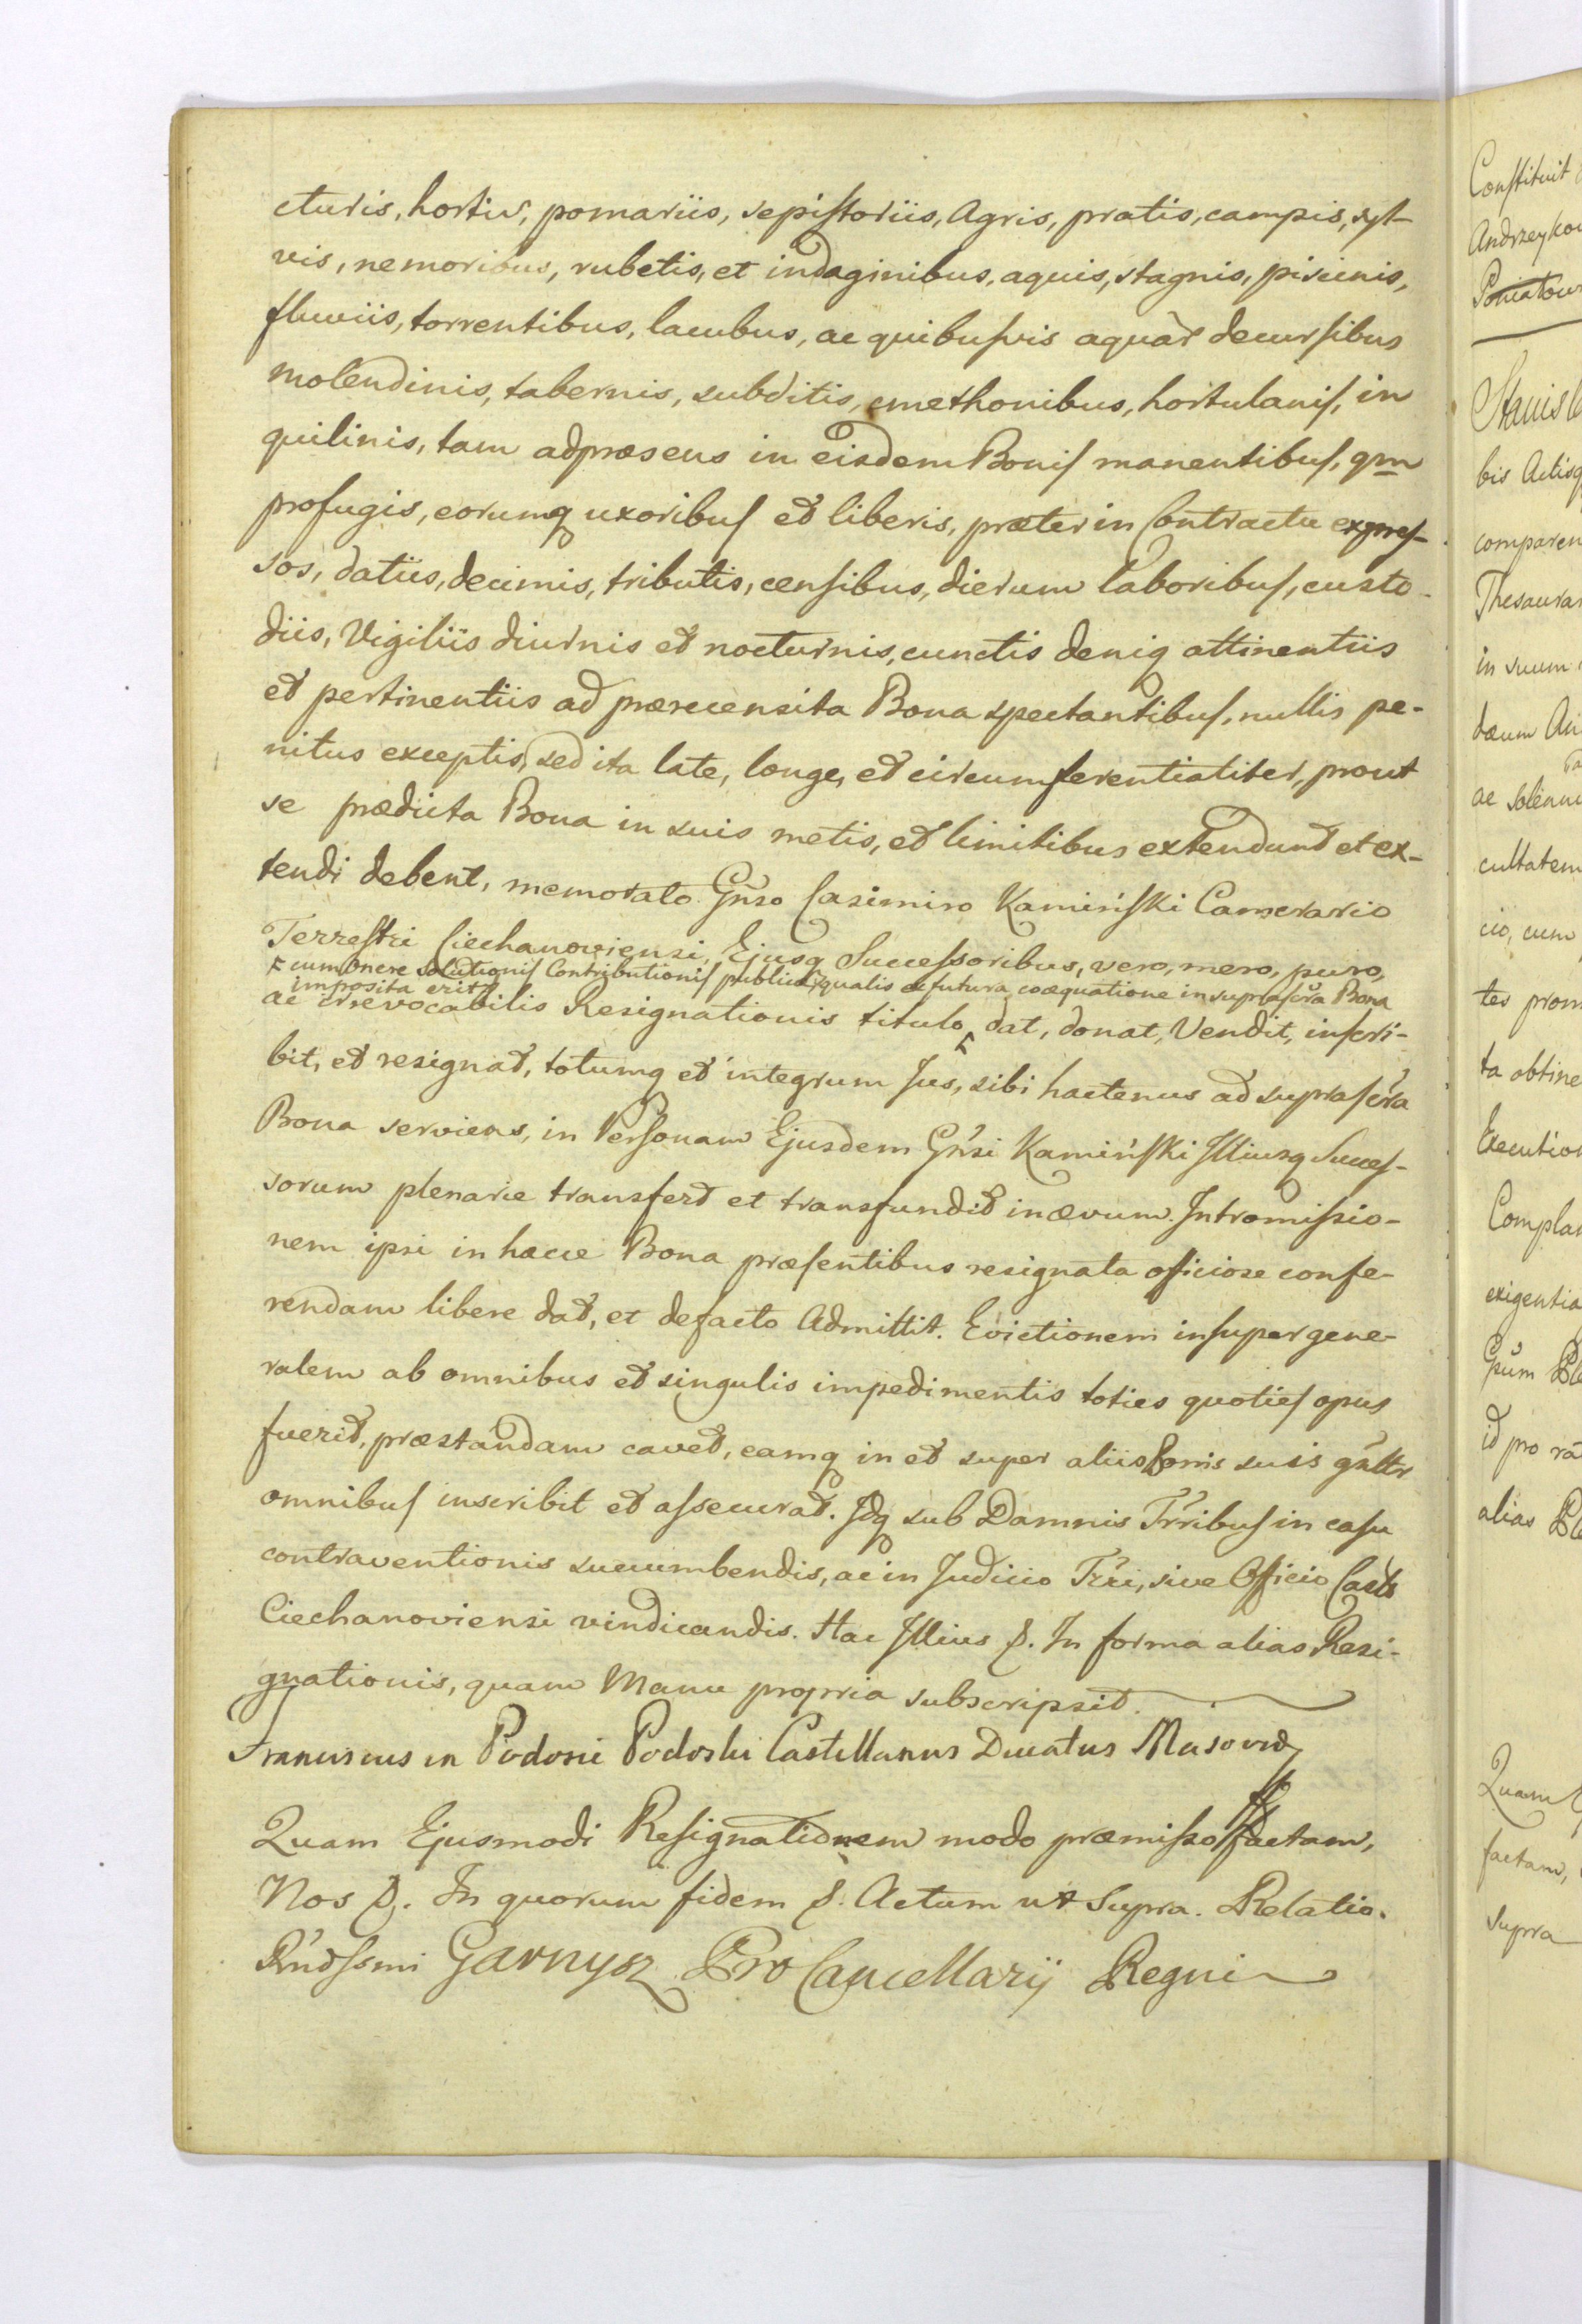 cturis, hortis, pomariis, sepistoriis, Agris, pratis, campis, syl-
vis, nemoribus, rubetis, et indaginibus, aquis, stagnis, piscinis,
fluviis, torrentibus, lacubus, ac quibusvis aquar̃ decursibus
molendinis, tabernis, subditis, cmethonibus, hortulanis, in
quilinis, tam adpræsens in eisdem Bonis manentibus, qm
profugis, eorumq uxoribus et liberis, præter in Contractu expres-
sos, datiis, decimis, tributis, censibus, dierum laboribus, custo-
diis, Vigiliis diurnis et nocturnis, cunctis deniq attinentiis
et pertinentiis ad prærecensita Bona spectantibus, nullis pe-
nitus exceptis, sed ita late, longe, et circumferentialiter, prout
se prædicta Bona in suis metis, et limitibus extendunt et ex-
tendi debent, memorato Gñso Casimiro Kamiński Camerario
Terrestri Ciechanoviensi, Ejusq Successoribus, vero, mero, puro,
cum onere solutionis Contributionis publicæ, qualis ex futura coæquatione in suprascr̃a Bona
imposita erit
ac irrevocabilis Resignationis titulo dat, donat, Vendit, inscri-
bit, et resignat, totumq et integrum Jus, sibi hactenus ad suprascr̃a
Bona serviens, in Personam Ejusdem Gñsi Kamiński Illiusq Succes-
sorum plenarie transfert et transfundit in ævum. Intromissio-
nem ipsi in hæcce Bona præsentibus resignata officiose confe-
rendam libere dat, et defacto Admittit. Evictionem insuper gene-
ralem ab omnibus et singulis impedimentis toties quoties opus
fuerit, præstandam cavet, eamq in et super aliis bonis suis gñltr
omnibus inscribit et assecurat. Idq sub Damnis Tr̃ribus in casu
contraventionis succumbendis, ac in Judicio Tr̃ri, sive Officio Castr
Ciechanoviensi vindicandis. Hac Illius &. In forma alias Resi-
gnationis, quam Manu propria subscripsit.
Franciscus in Podosie Podoski Castellanus Ducatus Masoviæ
Quam Ejusmodi Resignationem modo præmisso factam,
Nos &. In quorum fidem &. Actum ut Supra. Relatio.
Rñdssmi Garnysz Pro Cancellarij Regni
Constituit
Stanisla
bis Actisq
comparen
Thesaurar
in suum
ac Solenni
cultatem
cio, cum
tes prom
ta obtine
Execution
Complan
exigentia
id pro
alias
Quam
factam,
Supra